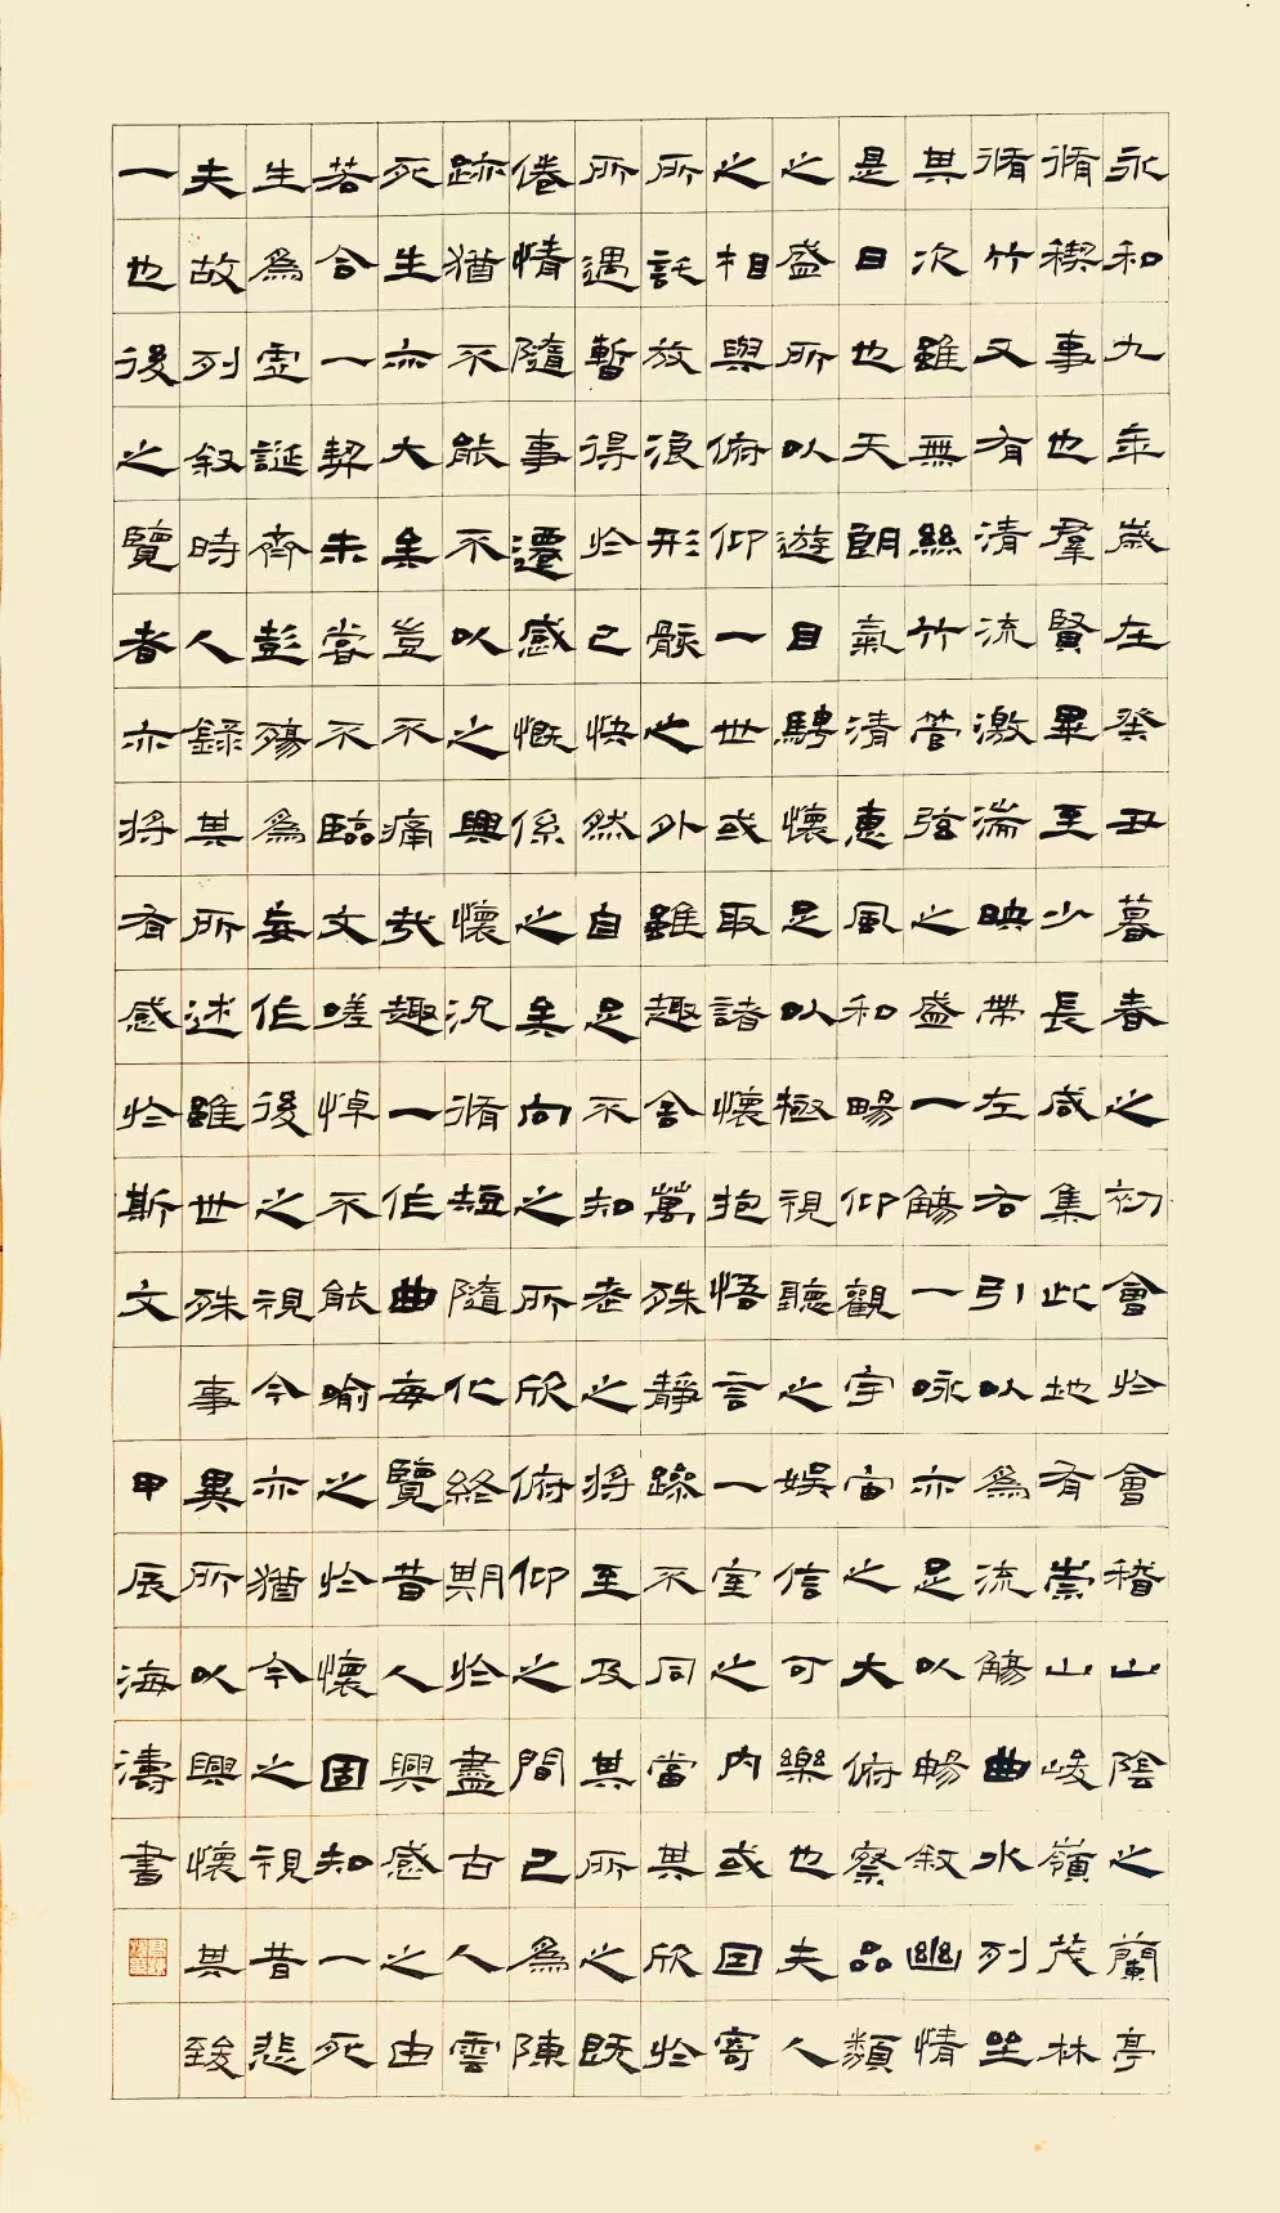 永和九年歲在癸丑暮春之初會於會稽山陰之蘭亭
脩稧事也羣賢畢至少長咸集此地有崇山峻嶺茂林
脩竹又有清流激湍映帶左右引以為流觴曲水列坐
其次雖無絲竹管弦之盛一觴一咏亦足以暢敘幽情
是日也天朗氣清惠風和暢仰觀宇宙之大俯察品類
之盛所以遊目騁懷足以極視聽之娛信可樂也夫人
之相與俯仰一世或取諸懷抱悟言一室之內或因寄
所託放浪形骸之外雖趣舍萬殊靜躁不同當其欣於
所遇暫得於己快然自足不知老之將至及其所之既
倦情隨事遷感慨係之矣向之所欣俯仰之間已為陳
跡猶不能不以之興懷況脩短隨化終期於盡古人雲
死生亦大矣豈不痛哉趣一作曲每覽昔人興感之由
若合一契未嘗不臨文嗟悼不能喻之於懷固知一死
生為虛誕齊彭殤為妄作後之視今亦猶今之視昔悲
夫故列敘時人錄其所述雖世殊事異所以興懷其致
一也後之覽者亦將有感於斯文 甲辰海濤書